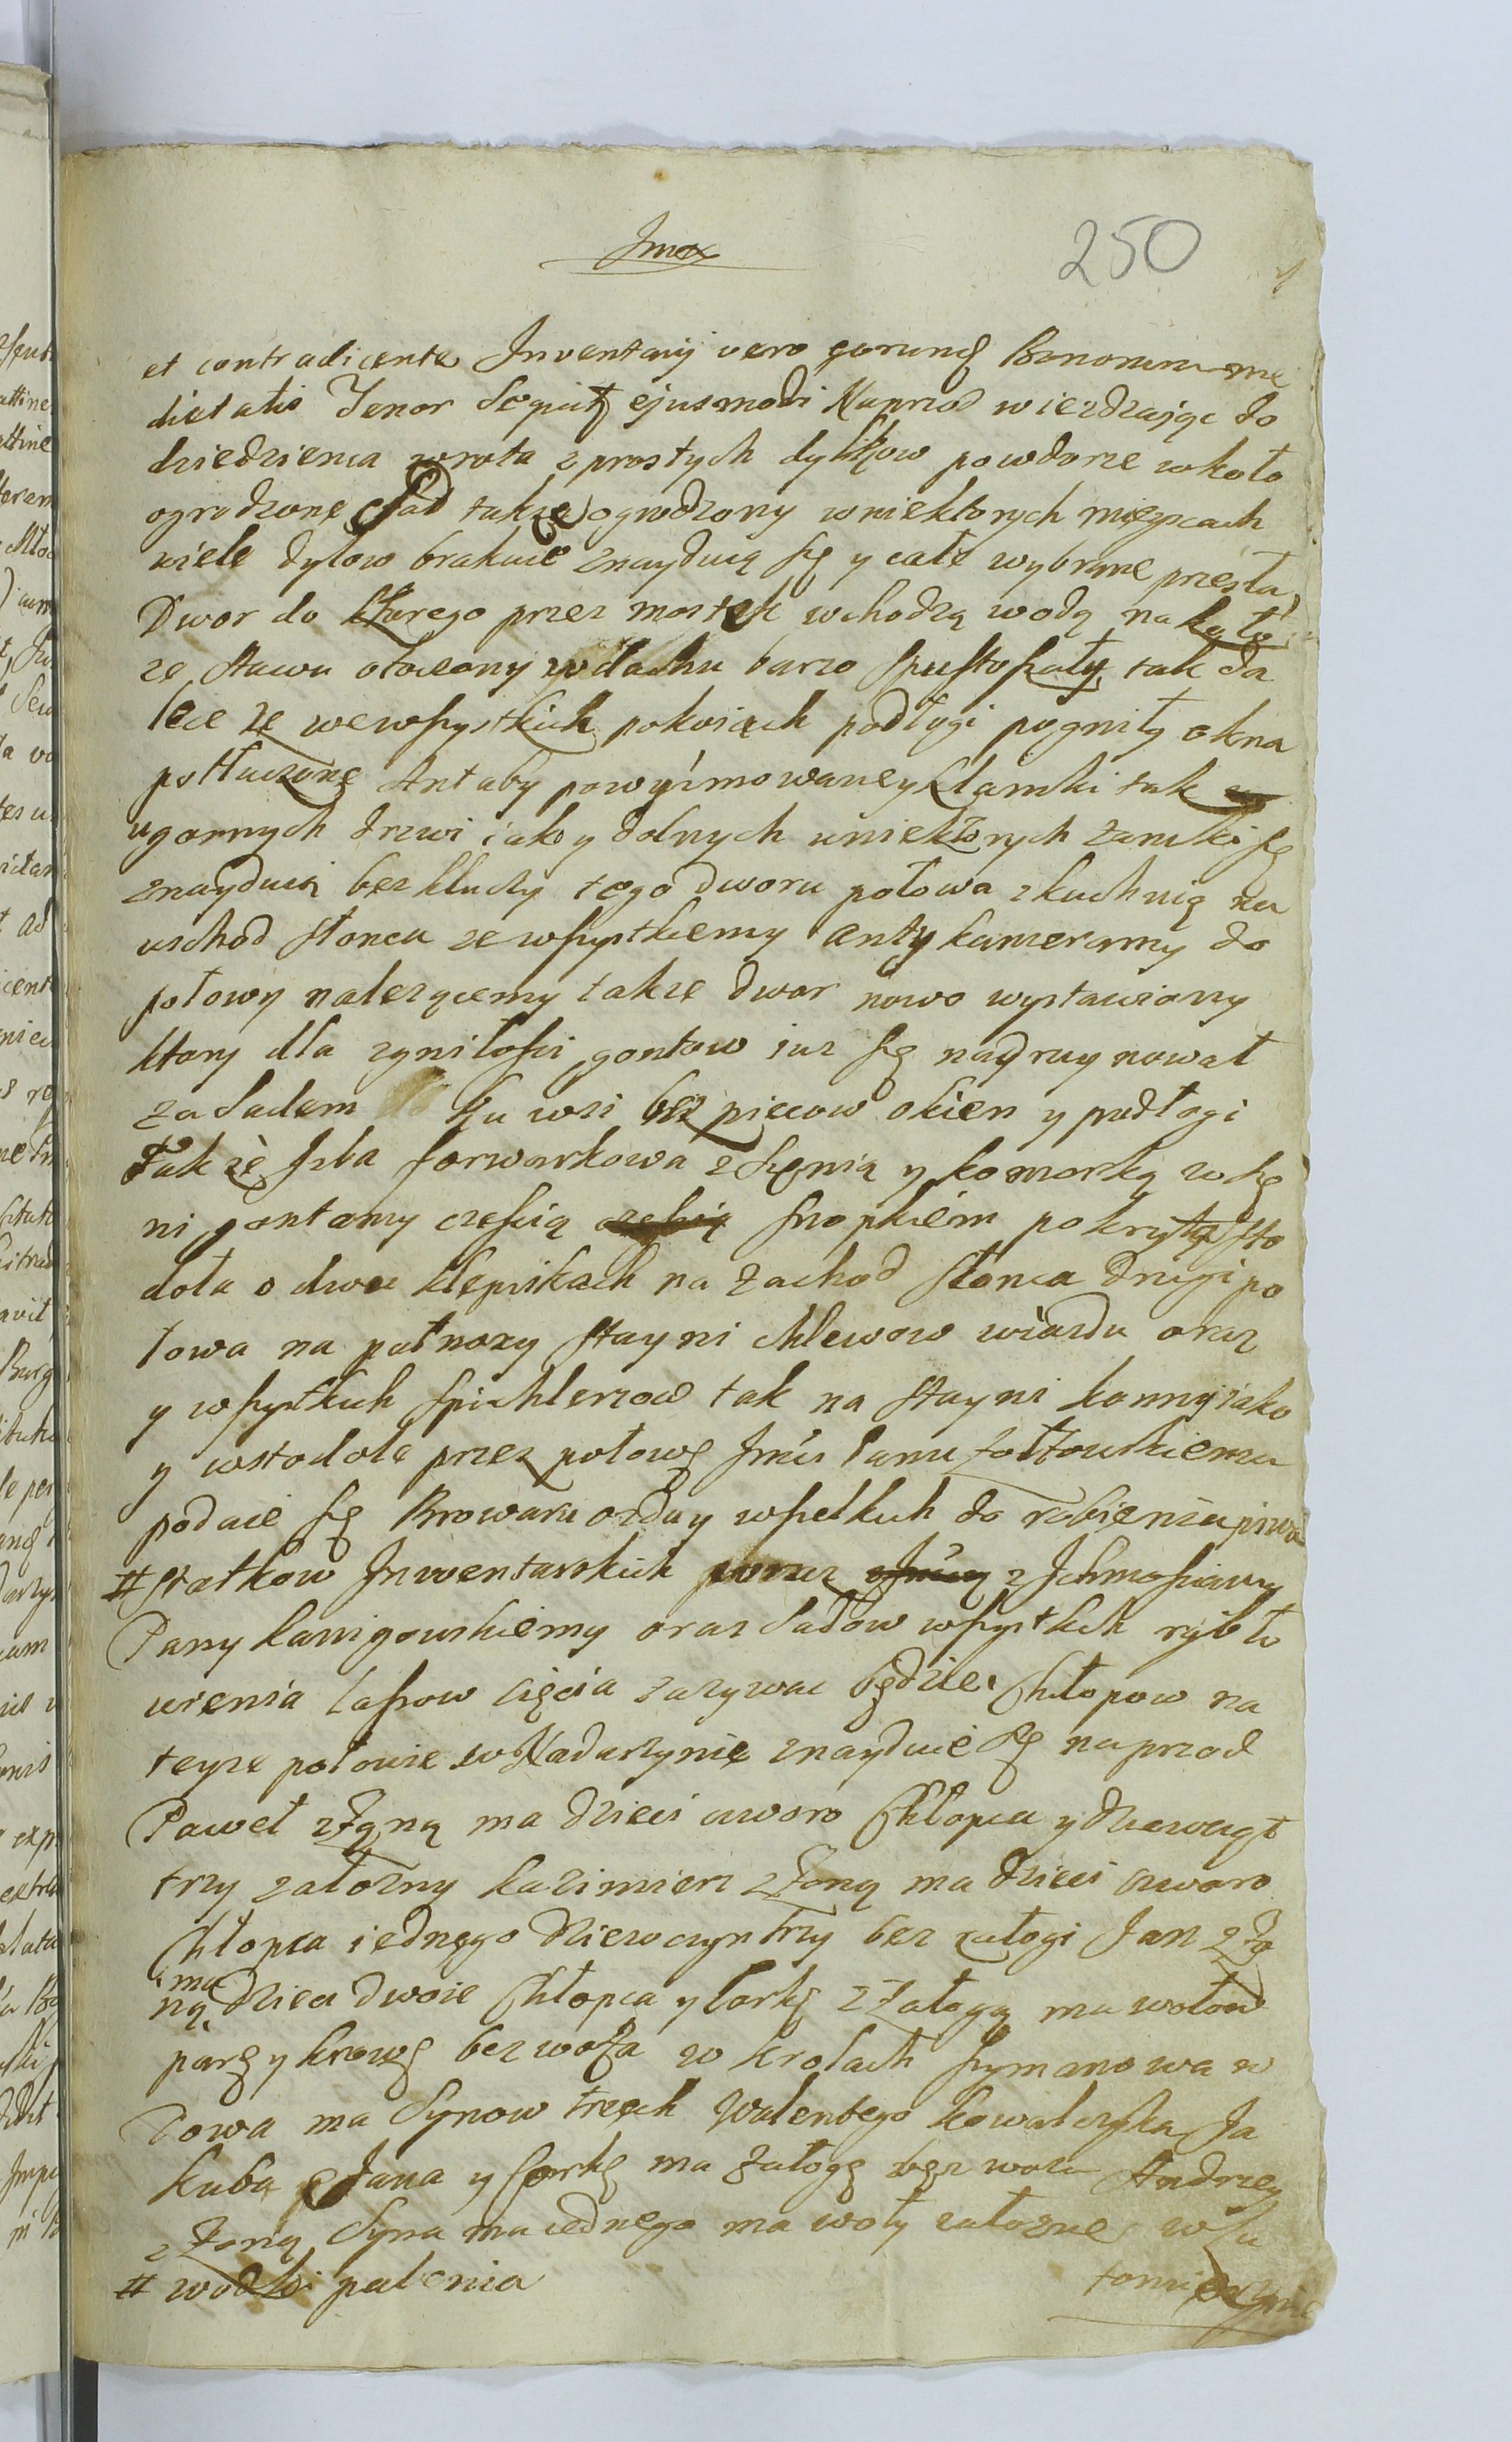 250
et contradicente Inventarij vero eorund Bonorum me
dietatis Tenor Sequit ejusmodi Naprzod wiezdzaiąc do
dziedzienca wrota z prostych dylikow powdarze wkoło
ogrodzone Sad takze ogrodzony wniektorych mieyscach
wiele dylow brakuie znayduią sę y całe wybrane przesła
Dwor do ktorego przez mostek wchodzą wodą na koło
ze stawu otoczony w dachu barzo spustoszały tak da
lece ze wewszystkich pokoiach podłogi pogniły okna
potłuczone Antaby powyimowane y klamki tak
ugornych drzwi iako y dolnych uniektorych zamki sę
znayduią bez kluczy tego dworu połowa z kuchnią na
wschod słonca ze wszystkiemy antykameramy do
połowy nalezącemy takze dwor nowo wystawiony
ktory dla zgniłosci gontow iuz sę nadruynował
za Sadem ku wsi bez piecow okien y podłogi
Takze Izba forwarkowa z Sęnią y komorką w sę
ni gontamy częscią snopkiem pokryta sto
doła o dwu klepiskach na zachod słonca drugi po
łowa na pułnocy stayni chlewow wiazdu oraz
y wszystkich spichlerzow tak na stayni konny iako
y wstodole przez połowę Jmci Panu Zołtowskiemu
podaie sę Browaru ozdu y wszelkich do robienia piwa
# statkow Inwentarskich poruz z Ichmosciamy
Pany Kanigowskiemy oraz Sadow wszystkich ryb ło
wienia lassow cięcia zazywac będzie Chłopow na
teyze połowie w Nadarzynie znayduie sę naprzod
Paweł z Zoną ma dzieci czworo Chłopca y dziewcząt
trzy załozny Kazimierz z Zoną ma dzieci czworo
Chłopca iednego dziewczyn trzy bez załogi Jan z Zo
ną ma dzieci dwoie Chłopca y Corkę z Załogą ma wołow
parę y krowę bez woza w krolach Szymanowa w
dowa ma Synow trzech Walentego kowalczyka Ja
kuba Jana y Corkę ma Załogę bez wozu Andrzey
z Zoną Syna ma iednego ma woły załozne w Su
# wodki palenia